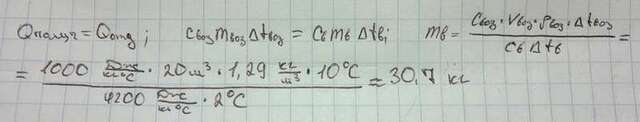 Qполуч = Qотд; Cвоз mвоз Δtвоз = Cв mв Δtв; mв = Cвоз · Vвоз · ρвоз · Δtвоз / Cв Δtв =
= 1000 Дж/кг°C · 20 м³ · 1,29 кг/м³ · 10°C / 4200 Дж/кг°C · 2°C = 30,7 кг